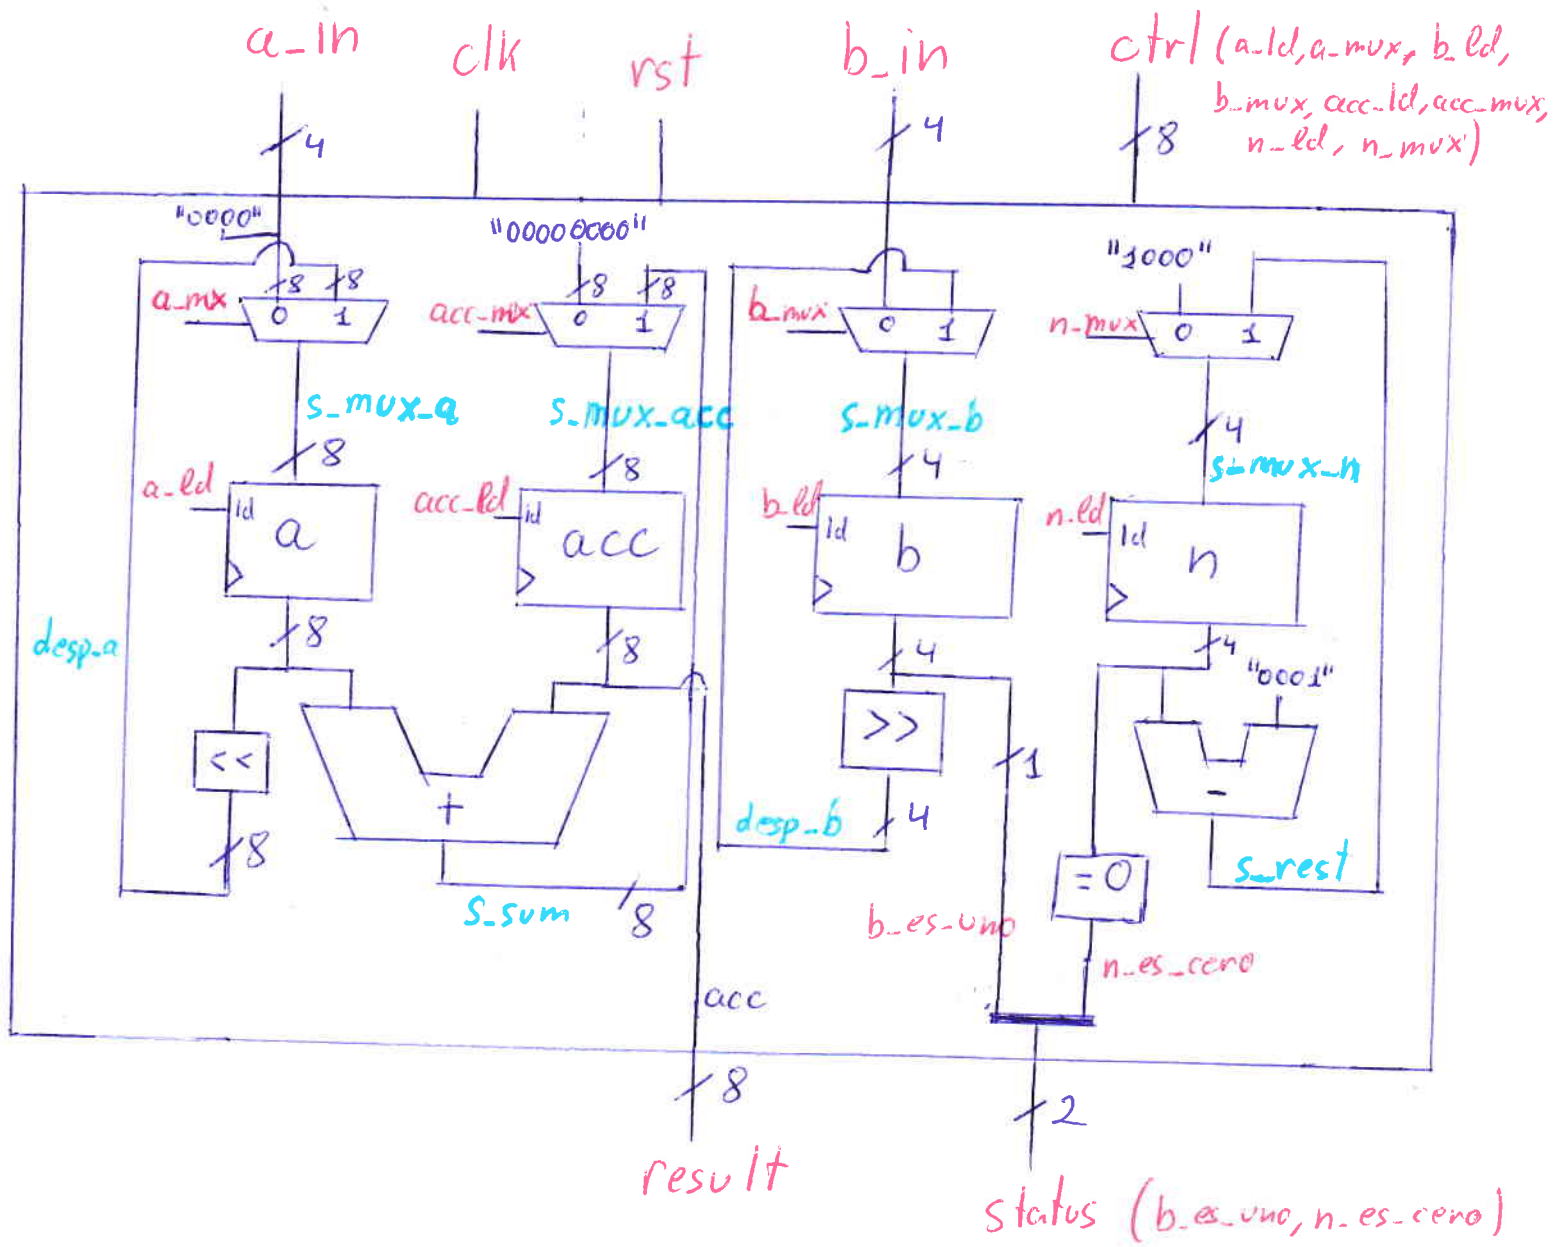 a_in
clk
rst
b_in
ctrl (a_ld, a_mux, b_ld,
b_mux, acc_ld, acc_mux,
n_ld, n_mux)
4
4
8
"0000"
"00000000"
"1000"
8
8
8
8
a_mx
0 1
acc_mx
0 1
b_mux
0 1
n_mux
0 1
s_mux_a
s_mux_acc
s_mux_b
s_mux_n
8
8
4
4
a_ld
ld
a
acc_ld
ld
acc
b_ld
ld
b
n_ld
ld
n
desp_a
8
8
4
4
"0001"
<<
+
>>
1
-
8
desp_b
4
= 0
s_rest
s_sum
8
b_es_uno
n_es_cero
acc
8
2
result
status (b_es_uno, n_es_cero)